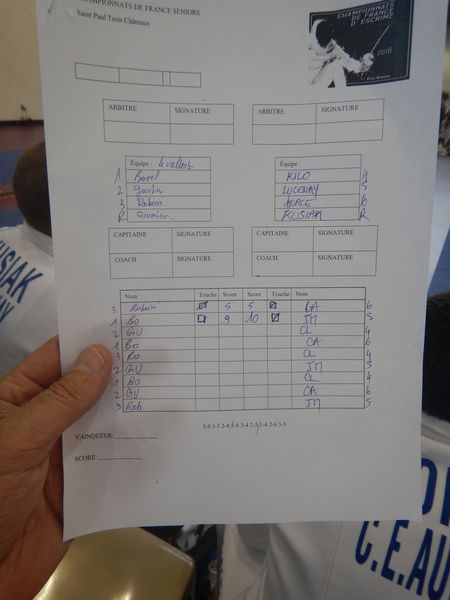 CHAMPIONNATS DE FRANCE SENIORS
Saint Paul Trois Châteaux
CHAMPIONNATS
DE FRANCE
D'ESCRIME
2016
ARBITRE SIGNATURE ARBITRE SIGNATURE
Équipe : 4 vallons Équipe :
1 Borel KILO 4
2 Gustin LUCENAY 5
3 Robein 6
R RUSIAK R
CAPITAINE SIGNATURE CAPITAINE SIGNATURE
COACH SIGNATURE COACH SIGNATURE
Nom Touche Score Score Touche Nom
3 Robein 5 5 5 5 CA 6
1 Bo 4 9 10 5 JM 5
2 GU CL 4
1 Bo CA 6
3 Ro CL 4
2 GU JM 5
1 Bo CL 4
2 GU CA 6
3 Rob. JM 5
3-6 1-5 2-4 1-6 3-4 2-5 1-4 2-6 3-5
VAINQUEUR:
SCORE:
SIAK
C.E.AU